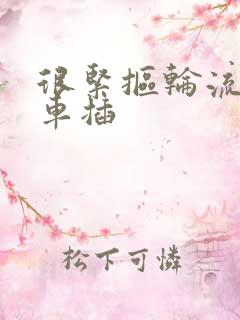 很緊摳輪流
車插
松下可憐